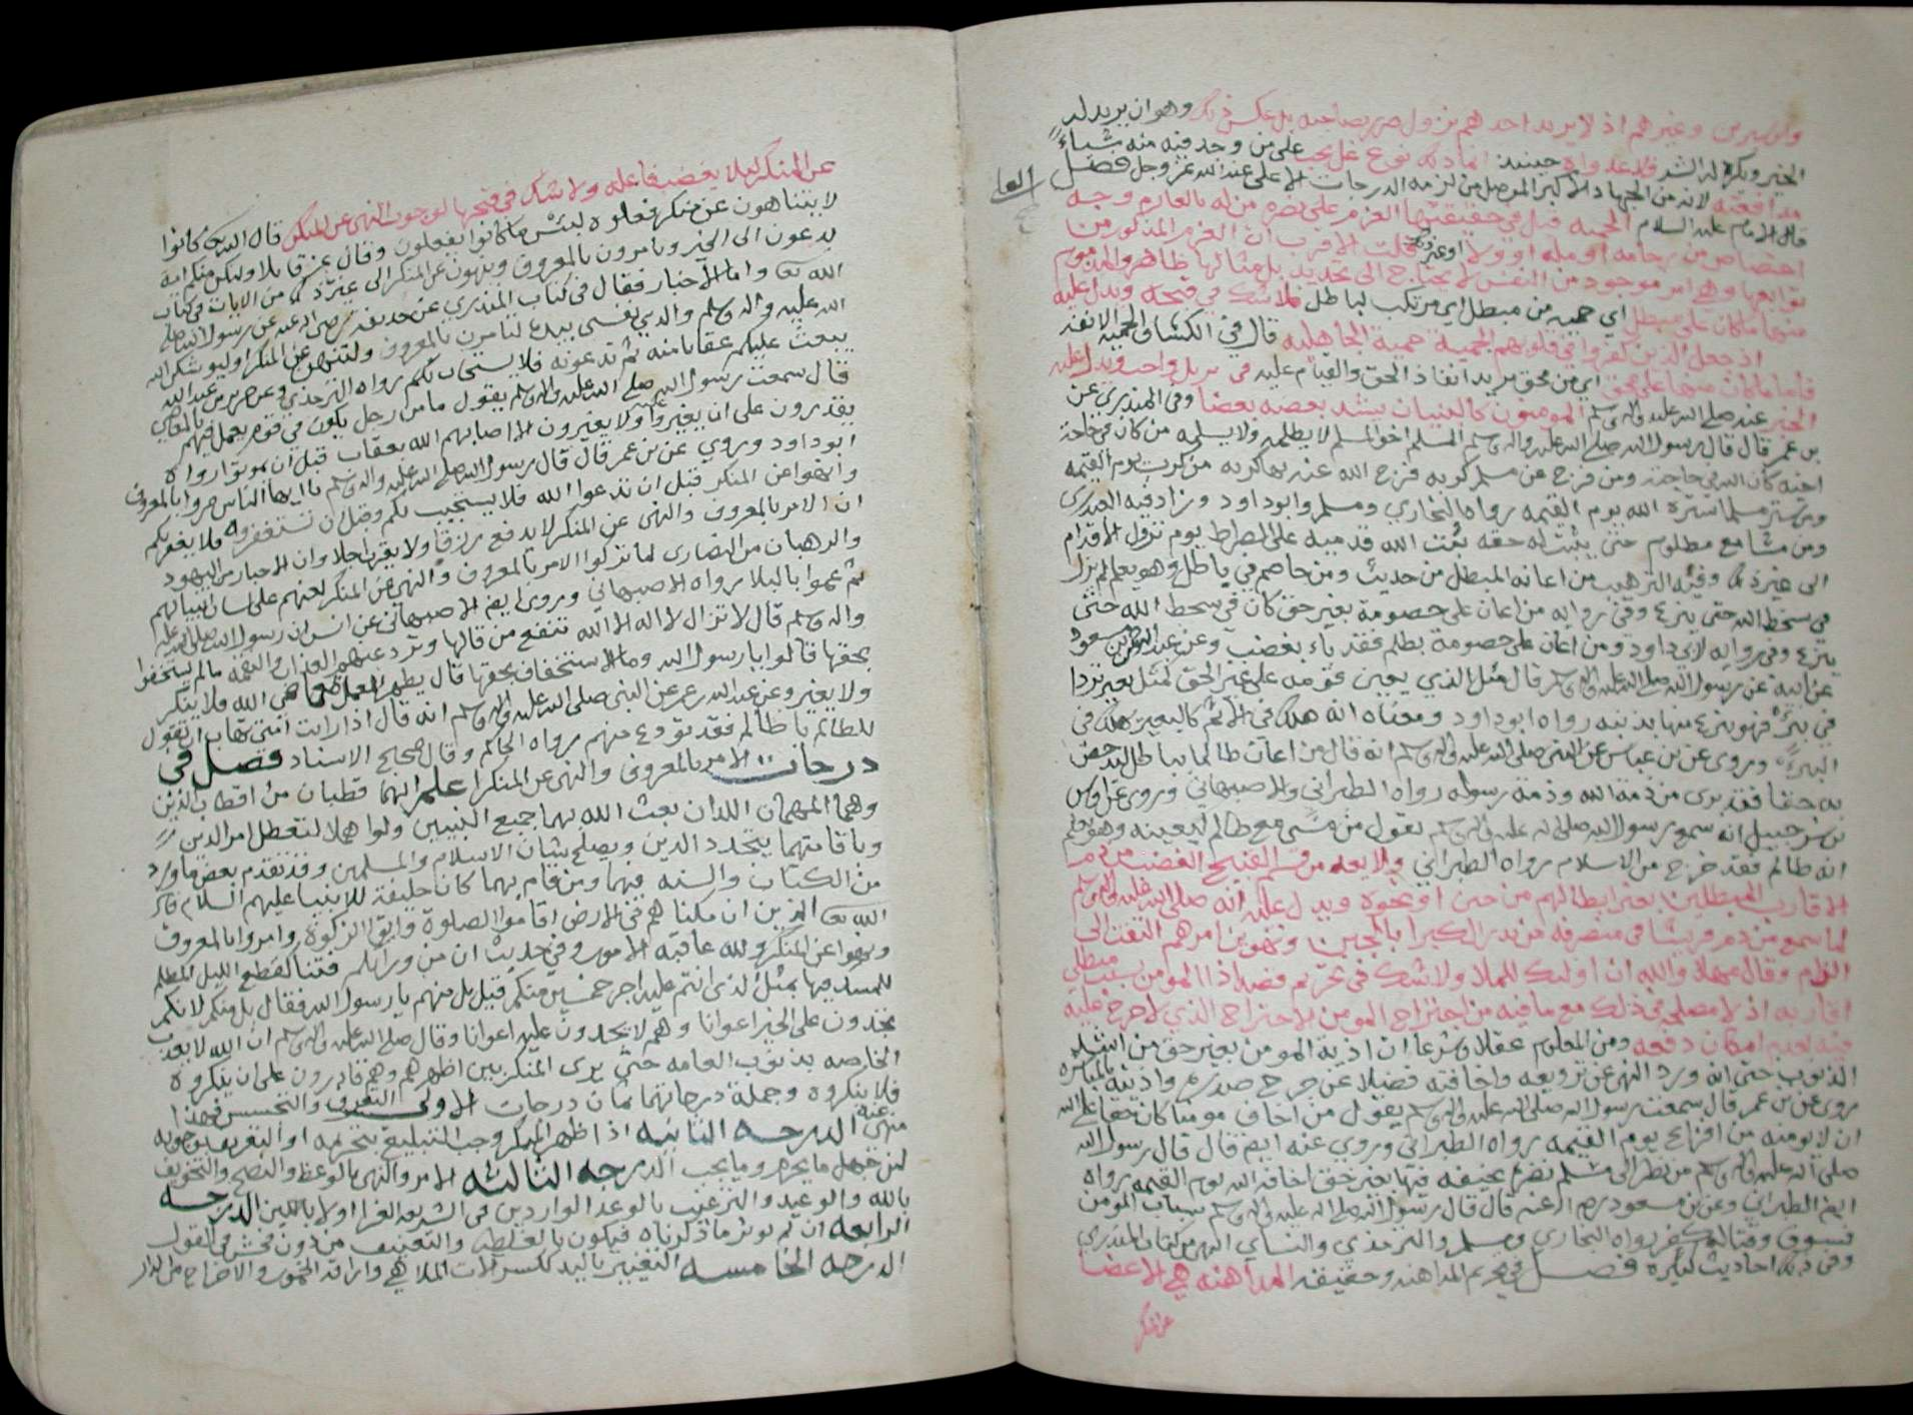 وابن سيرين وغيرهم اذ لا يريد احدهم نزول ضرر بصاحبه بل عكس ذلك وهو ان يريد له
الخير ويكره له الشر فلا عداوة حينئذ انما ذلك نوع غل يجب على من وجد فيه منه شياءً
مدافعته لانه من الجهاد الاكبر الموصل من لزمه الدرجات الاعلى عند الله عز وجل فصل
قال الامام عليه السلام الحمية قيل في حقيقتها العزم على نصرة من له بالعازم وجه
اختصاص من رحامة او ملة او ولاء او غير ذلك قلت الاقرب ان العزم المذكور من
توابعها وهي امر موجود من النفس لا يحتاج الى تحديد بل مثالها ظاهر والمذموم
منها ما كان على مبطل اي حمية من مبطل اي مرتكب لباطل فلا شك في قبحه ويدل عليه
اذ جعل الذين كفروا في قلوبهم الحمية حمية الجاهلية قال في الكشاف الحمية الانفة
فاما ما كان منها على محق اي من محق يريد انفاذ الحق والقيام عليه في بل واجب ويدل عليه
الخبر عنه صلى الله عليه واله وسلم المومنون كالبنيان يشد بعضه بعضا وفي المنذري عن
بن عمر قال قال رسول الله صلى الله عليه واله وسلم المسلم اخو المسلم لا يظلمه ولا يسلمه من كان في حاجة
اخيه كان الله في حاجته ومن فرج عن مسلم كربه فرج الله عنه بها كربه من كرب يوم القيمه
ومن ستر مسلما ستره الله يوم القيمه رواه البخاري ومسلم وابو داود وزاد فيه العبدري
ومن مشا مع مظلوم حتى يثبت له حقه ثبت الله قدميه على الصراط يوم تزول الاقدام
الى غير ذلك وفيه الترهيب من اعانة المبطل من حديث ومن خاصم في باطل وهو يعلم لم يزل
في سخط الله حتى ينزع وفي روايه من اعان على خصومة بغير حق كان في سخط الله حتى
ينزع وفي روايه لابي داود ومن اعان على خصومة بظلم فقد باء بغضب وعن عبد الرحمن بن مسعود
عن ابيه عن رسول الله صلى الله عليه واله وسلم قال مثل الذي يعين قومه على غير الحق كمثل بعير تردا
في بئر فهو ينزع منها بذنبه رواه ابو داود ومعناه انه هلك في الاثم كالبعير هلك في
البئر وروى عن بن عباس عن النبي صلى الله عليه واله وسلم انه قال من اعان ظالما بباطل ليدحض
به حقا فقد برى من ذمة الله وذمة رسوله رواه الطبراني والاصبهاني وروى عن اوس
بن شرحبيل انه سمع رسول الله صلى الله عليه واله وسلم يقول من مشى مع ظالم ليعينه وهو يعلم
انه ظالم فقد خرج من الاسلام رواه الطبراني ولا يعد من القبيح الغضب من ذم
الاقارب المبطلين بغير ابطالهم من جبن او نحوه ويدل عليه انه صلى الله عليه واله وسلم
لما سمع من ذم قريشا في منصرفه من بدر الكبرا بالجبن وتهوين امرهم التفت الى
الذام وقال مهلا والله ان اولئك للملا ولا شك في تحريم قصد اذا المومن بسبب مبطلي
اقاربه اذ لا مصلحة في ذلك مع ما فيه من اخراج المومن الاخراج الذي لا حرج عليه
فيه لعدم امكان دفعه ومن المعلوم عقلا وشرعا ان اذية المومن بغير حق من اشد
الذنوب حتى انه ورد النهي عن ترويعه واخافته فضلا عن جرح صدره واذيته بالمباشره
روى عن بن عمر قال سمعت رسول الله صلى الله عليه واله وسلم يقول من اخاف مومنا كان حقا على الله
ان لا يومنه من افزاع يوم القيمه رواه الطبراني وروي عنه ايضا قال قال رسول الله
صلى الله عليه واله وسلم من نظر الى مسلم نظرة يخيفه فيها بغير حق اخافه الله يوم القيمه رواه
ايضا الطبراني وعن بن مسعود رضي الله عنه قال قال رسول الله صلى الله عليه واله وسلم سباب المومن
فسوق وقتاله كفر رواه البخاري ومسلم والترمذي والنساي انتهى من كتاب المنذري
وفي ذلك احاديث كثيرة فصل في تحريم المداهنه وحقيقة المداهنه هي الاغضا
عن المنكر
عن المنكر لئلا يغضب فاعله ولا شك في قبحها لوجوب النهي عن المنكر قال الله تعالى كانوا
لا يتناهون عن منكر فعلوه لبئس ما كانوا يفعلون وقال عز قايلا ولتكن منكم امة
يدعون الى الخير ويامرون بالمعروف وينهون عن المنكر الى غير ذلك من الايات في كتاب
الله تعالى واما الاخبار فقال في كتاب المنذري عن حذيفة رضي الله عنه عن رسول الله صلى
الله عليه واله وسلم والذي نفسي بيده لتامرن بالمعروف ولتنهون عن المنكر او ليوشكن الله
يبعث عليكم عقابا منه ثم تدعونه فلا يستجاب لكم رواه الترمذي وعن جرير بن عبد الله
قال سمعت رسول الله صلى الله عليه واله وسلم يقول ما من رجل يكون في قوم يعمل فيهم بالمعاصي
يقدرون على ان يغيروا ولا يغيرون الا اصابهم الله بعقاب قبل ان يموتوا رواه
ابو داود وروي عن بن عمر قال قال رسول الله صلى الله عليه واله وسلم يا ايها الناس مروا بالمعروف
وانهوا عن المنكر قبل ان تدعوا الله فلا يستجيب لكم وقبل ان تستغفروه فلا يغفر لكم
ان الامر بالمعروف والنهي عن المنكر لا يدفع رزقا ولا يقرب اجلا وان الاحبار من اليهود
والرهبان من النصارى لما تركوا الامر بالمعروف والنهي عن المنكر لعنهم على لسان انبيائهم
ثم عموا بالبلا رواه الاصبهاني وروى ايضا الاصبهاني عن انس ان رسول الله صلى الله عليه
واله وسلم قال لا تزال لا اله الا الله تنفع من قالها وترد عنهم العذاب والنقمه ما لم يستخفوا
بحقها قالوا يا رسول الله وما الاستخفاف بحقها قال يظهر العمل بمعاصي الله فلا ينكر
ولا يغير وعن عبد الله بن عمر عن النبي صلى الله عليه واله وسلم انه قال اذا رايت امتي تهاب ان تقول
للظالم يا ظالم فقد تودع منهم رواه الحاكم وقال صحيح الاسناد فصل في
درجات الامر بالمعروف والنهي عن المنكر اعلم انهما قطبان من اقطاب الدين
وهما المهمان اللذان بعث الله بهما جميع النبيين ولو اهملا لتعطل امر الدين
وباقامتهما يتجدد الدين ويصلح شان الاسلام والمسلمين وقد تقدم بعض ما ورد
من الكتاب والسنه فيهما ومن قام بهما كان خليفة للانبيا عليهم السلام قال
الله تعالى الذين ان مكناهم في الارض اقاموا الصلوة واتوا الزكوة وامروا بالمعروف
ونهوا عن المنكر ولله عاقبة الامور وفي حديث ان من ورائكم فتنا كقطع الليل المظلم
للمتمسك فيها بمثل الذي انتم عليه اجر خمسين منكم قيل بل منهم يا رسول الله فقال بل منكم لانكم
تجدون على الخير اعوانا وهم لا يجدون عليه اعوانا وقال صلى الله عليه واله وسلم ان الله لا يعذب
الخاصه بذنوب العامه حتى يرى المنكر بين اظهرهم وهم قادرون على ان ينكروه
فلا ينكروه وجملة درجاتهما ثمان درجات الاولى التعرف والتجسس فهذا
منهي عنه الدرجه الثانيه اذا ظهر المنكر وجب التبليغ بتحريمه او التعريف بوجوبه
لمن جهل ما يحرم وما يجب الدرجه الثالثه الامر والنهي بالوعظ والنصح والتخويف
بالله والوعيد والترغيب بالوعد الواردين في الشريعه الغرا اولا باللين الدرجه
الرابعه ان لم يوثر ما ذكرناه فيكون بالغلظه والتعنيف من دون فحش في القول
الدرجه الخامسه التغيير باليد ككسر الات الملاهي واراقة الخمور والاخراج من الدار